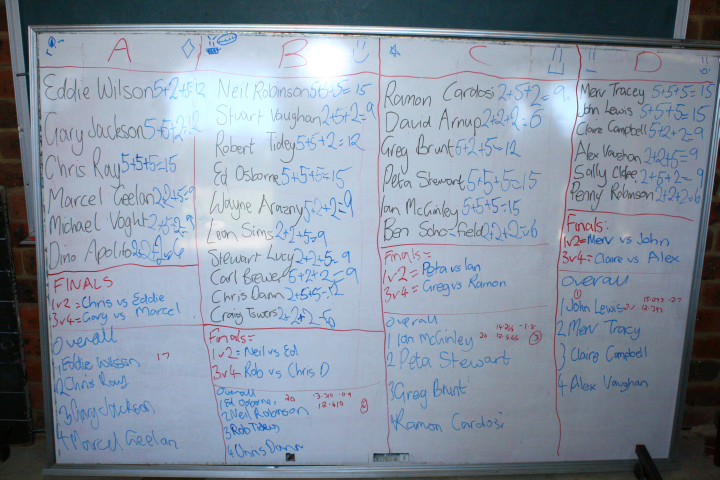 A
Eddie Wilson 5+2+5=12
Gary Jackson 5+5+2=12
Chris Ray 5+5+5=15
Marcel Geelan 2+2+5=9
Michael Voght 2+5+2=9
Dino Apolito 2+2+2=6
FINALS
1v2 = Chris vs Eddie
3v4 = Gary vs Marcel
Overall
1 Eddie Wilson 17
2 Chris Ray
3 Gary Jackson
4 Marcel Geelan
B
Neil Robinson 5+5+5=15
Stuart Vaughan 2+5+2=9
Robert Tidey 5+5+2=12
Ed Osborne 5+5+5=15
Wayne 5+2+2=9
Leon Sims 2+2+5=9
Stewart Lucy 2+2+5=9
Carl Brewer 5+2+2=9
Chris Dann 2+5+5=12
Craig 2+2+2=6
Finals=
1v2 = Neil vs Ed
3v4 = Rob vs Chris D
Overall
1 Ed Osborne. 20
2 Neil Robinson
3 Rob Tidey
4 Chris Dann
C
Ramon Cardosi 2+5+2=9
David Arnup 2+2+2=6
Greg Brunt 5+2+5=12
Peta Stewart 5+5+5=15
Ian McGinley 5+5+5=15
Ben Schofield 2+2+2=6
Finals=
1v2 = Peta vs Ian
3v4 = Greg vs Ramon
Overall
1 Ian McGinley 20
2 Peta Stewart
3 Greg Brunt
4 Ramon Cardosi
D
Merv Tracey 5+5+5=15
John Lewis 5+5+5=15
Claire Campbell 5+2+2=9
Alex Vaughan 2+2+5=9
Sally 2+5+2=9
Penny Robinson 2+2+2=6
Finals:
1v2 = Merv vs John
3v4 = Claire vs Alex
Overall
1 John Lewis 20
2 Merv Tracy
3 Claire Campbell
4 Alex Vaughan